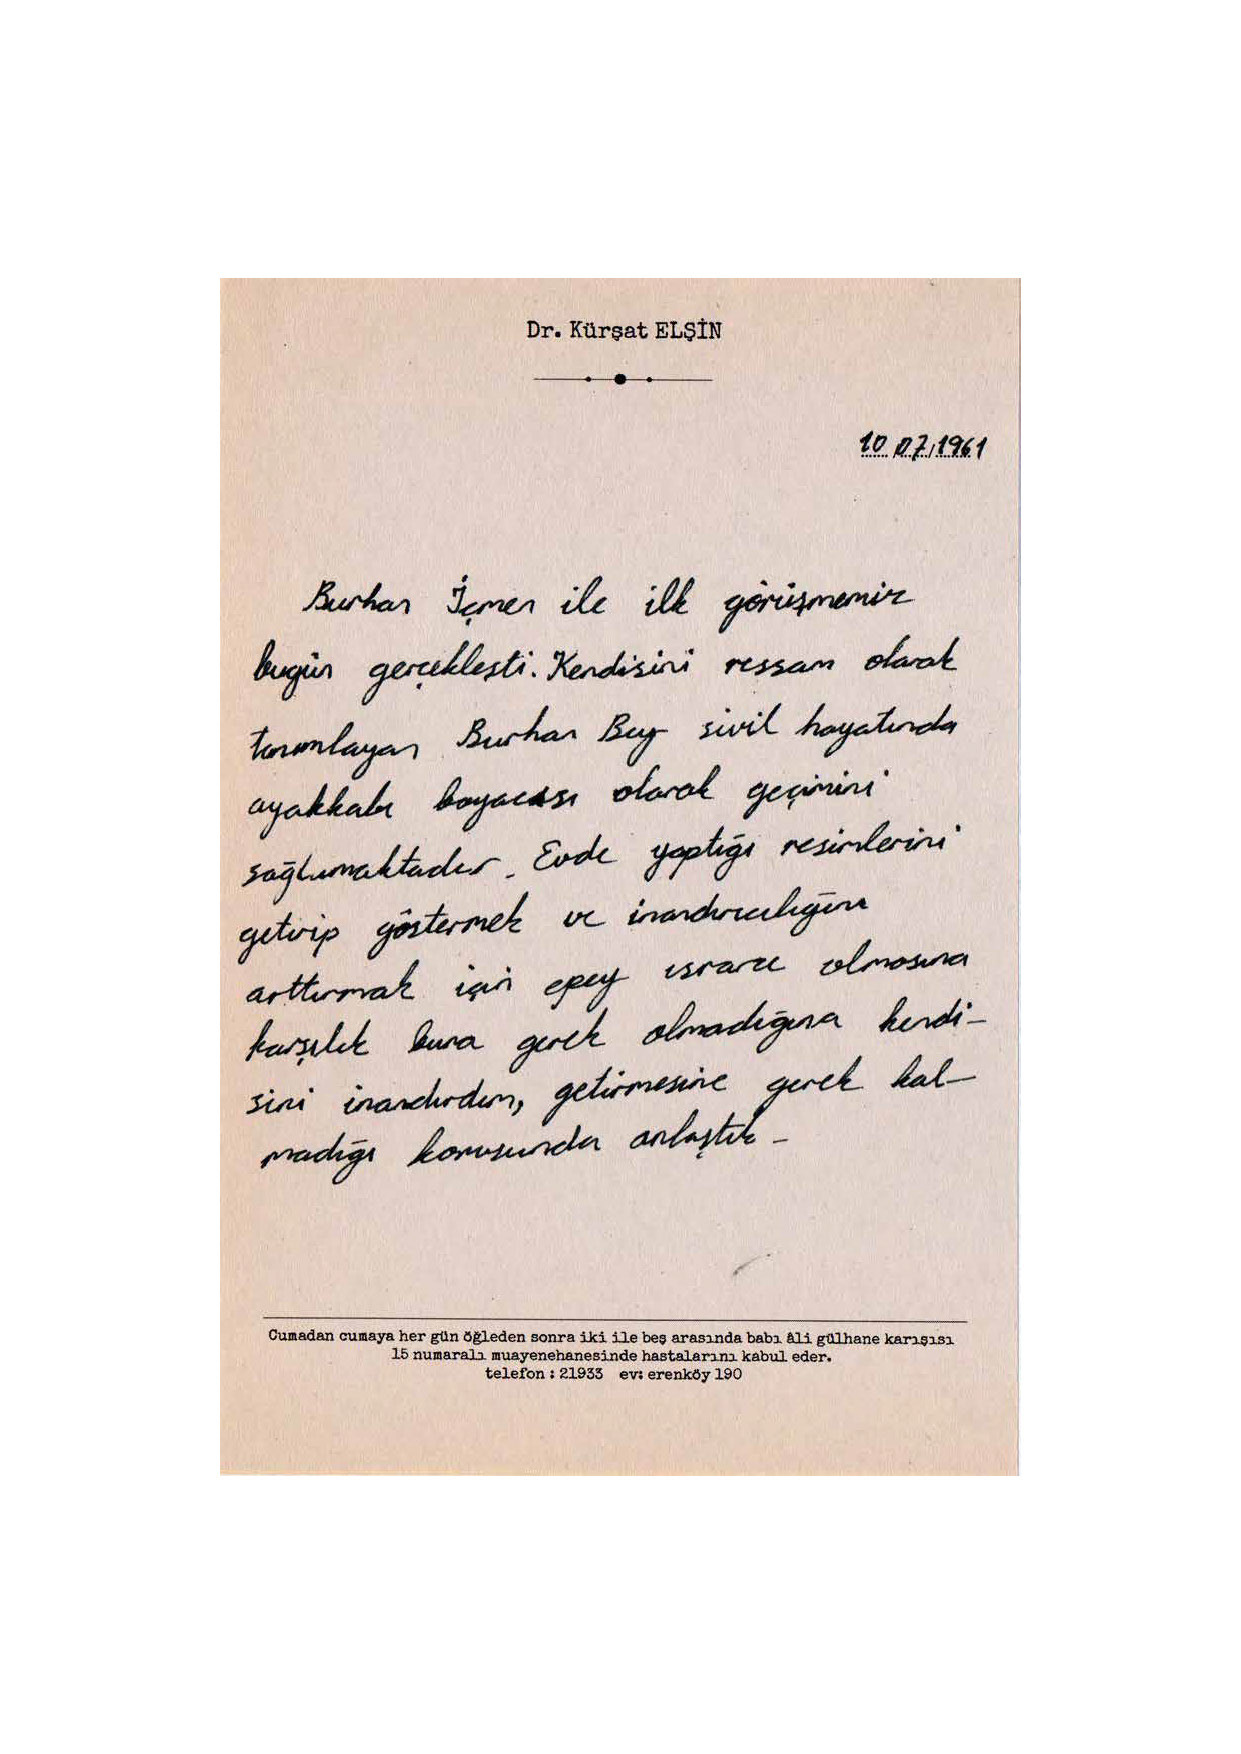 Dr. Kürşat ELŞİN
10.07.1961
Burhan İçmen ile ilk görüşmemiz
bugün gerçekleşti. Kendisini ressam olarak
tanımlayan Burhan Bey sivil hayatında
ayakkabı boyacısı olarak geçimini
sağlamaktadır. Evde yaptığı resimlerini
getirip göstermek ve inandırıcılığını
arttırmak için epey ısrarcı olmasına
karşılık buna gerek olmadığına kendi-
sini inandırdım, getirmesine gerek kal-
madığı konusunda anlaştık-
Cumadan cumaya her gün öğleden sonra iki ile beş arasında babı âli gülhane karışısı
15 numaralı muayenehanesinde hastalarını kabul eder.
telefon : 21933 ev: erenköy 190